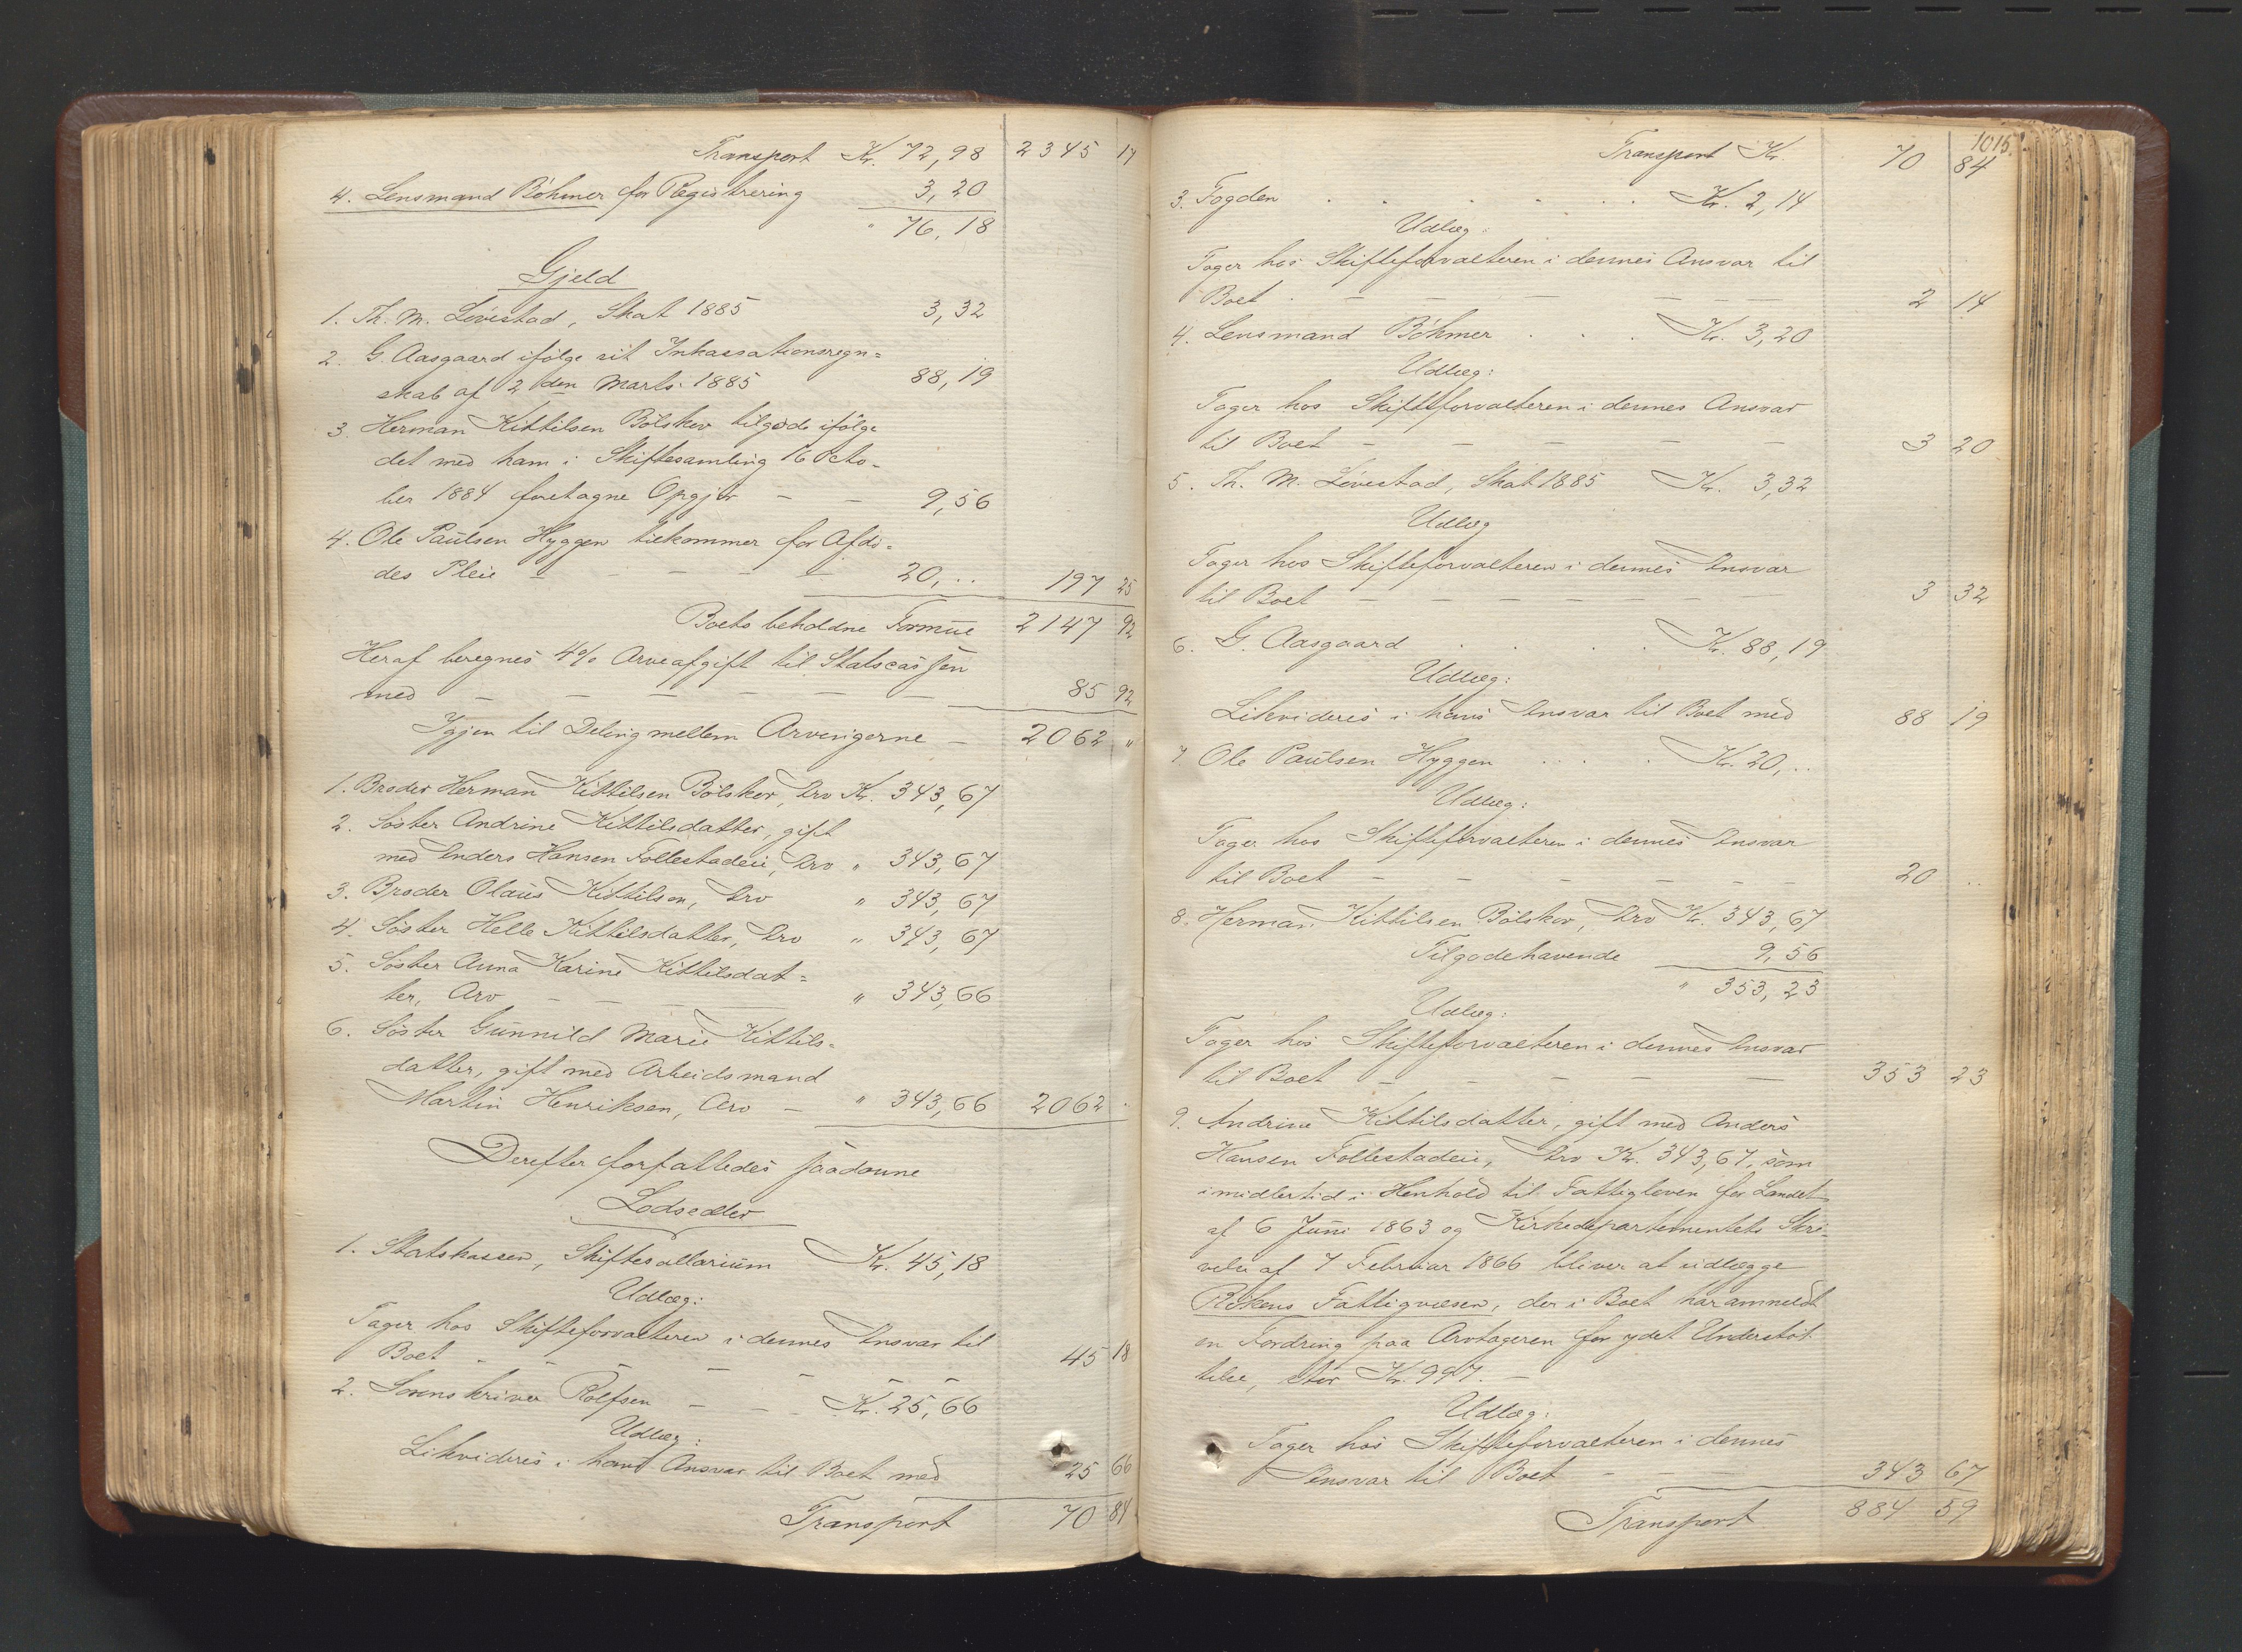 Transport Kr. 72,98 2345 17
4. Lensmand Böhmer for Registrering 3,20
" 76,18
Gjeld
1. Th. M. Lövestad, Skat 1885 3,32
2. G. Aasgaard ifølge sit Inkassationsregn=
skab af 2den Marts 1885 88,19
3. Herman Kittilsen Bölsker tilgode ifølge
det med ham i Skiftesamling 16 Octo-
ber 1884 foretagne Opgjör — — 9,56
4. Ole Paulsen Hyggen tilkommer for Afdö=
des Pleie — — — — — 20,.. 197 25
Boets beholdne Formue 2147 92
Heraf beregnes 4% Arveafgift til Statscassen
med — — — — — — 85 92
Igjen til Deling mellem Arvingerne — 2062 "
1. Broder Herman Kittilsen Bölsker, Arv Kr. 343,67
2. Söster Andrine Kittilsdatter, gift
med Anders Hansen Follestadeie, Arv " 343,67
3. Broder Olaus Kittilsen, Arv " 343,67
4. Söster Helle Kittilsdatter, Arv " 343,67
5. Söster Anna Karine Kittilsdat=
ter, Arv — — — — " 343,66
6. Söster Gunnild Marie Kittils=
datter, gift med Arbeidsmand
Martin Henriksen, Arv — " 343,66 2062 .
Derefter forfattedes saadanne
Lodsedler
1. Statskassen, Skiftesallarium Kr. 45,18
Udlæg:
Tager hos Skifteforvalteren i dennes Ansvar til
Boet - - - - - - - 45 18
2. Sorenskriver Rolfsen — — Kr. 25,66
Udlæg:
Likvideres i hans Ansvar til Boet med 25 66
Transport 70 84
1015.
Transport Kr. 70 84
3. Fogden . . . . . . Kr. 2,14
Udlæg:
Tager hos Skifteforvalteren i dennes Ansvar til
Boet . — — — — — — 2 14
4. Lensmand Böhmer . . . Kr. 3,20
Udlæg:
Tager hos Skifteforvalteren i dennes Ansvar
til Boet — — — — — 3 20
5. Th. M. Lövestad, Skat 1885 Kr. 3,32
Udlæg
Tager hos Skifteforvalteren i dennes Ansvar
til Boet — — — — — — — 3 32
6. G. Aasgaard . . . . Kr. 88,19
Udlæg:
Likvideres i hans Ansvar til Boet med 88 19
7. Ole Paulsen Hyggen . . . . Kr. 20,..
Udlæg:
Tager hos Skifteforvalteren i dennes Ansvar
til Boet — — — — — — — 20 ..
8. Herman Kittilsen Bölsker, Arv Kr. 343,67
Tilgodehavende 9,56
" 353,23
Udlæg:
Tager hos Skifteforvalteren i dennes Ansvar
til Boet — — — — — 353 23
9. Andrine Kittilsdatter, gift med Anders
Hansen Follestadeie, Arv Kr. 343,67, som
imidlertid i Henhold til Fattigloven for Landet
af 6 Juni 1863 og Kirkedepartementets Skri-
velse af 7 Februar 1866 bliver at udlægge
Rökens Fattigvæsen, der i Boet har anmeldt
en Fordring paa Arvtageren for ydet Understöt-
telse, stor Kr. 997. —
Udlæg:
Tager hos Skifteforvalteren i dennes
Ansvar til Boet — — — 343 67
Transport 884 59